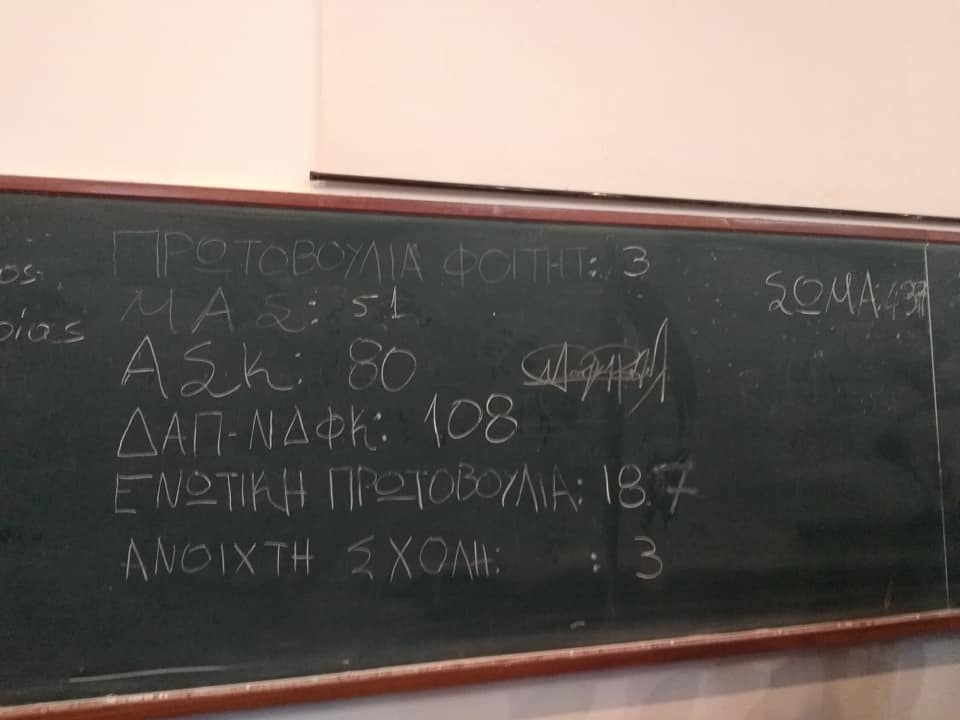 ΠΡΩΤΟΒΟΥΛΙΑ ΦΟΙΤΗΤ: 3
ΜΑΣ: 51
ΑΣΚ: 80
ΔΑΠ-ΝΔΦΚ: 108
ΕΝΩΤΙΚΗ ΠΡΩΤΟΒΟΥΛΙΑ: 187
ΑΝΟΙΧΤΗ ΣΧΟΛΗ: : 3
ΣΩΜΑ: